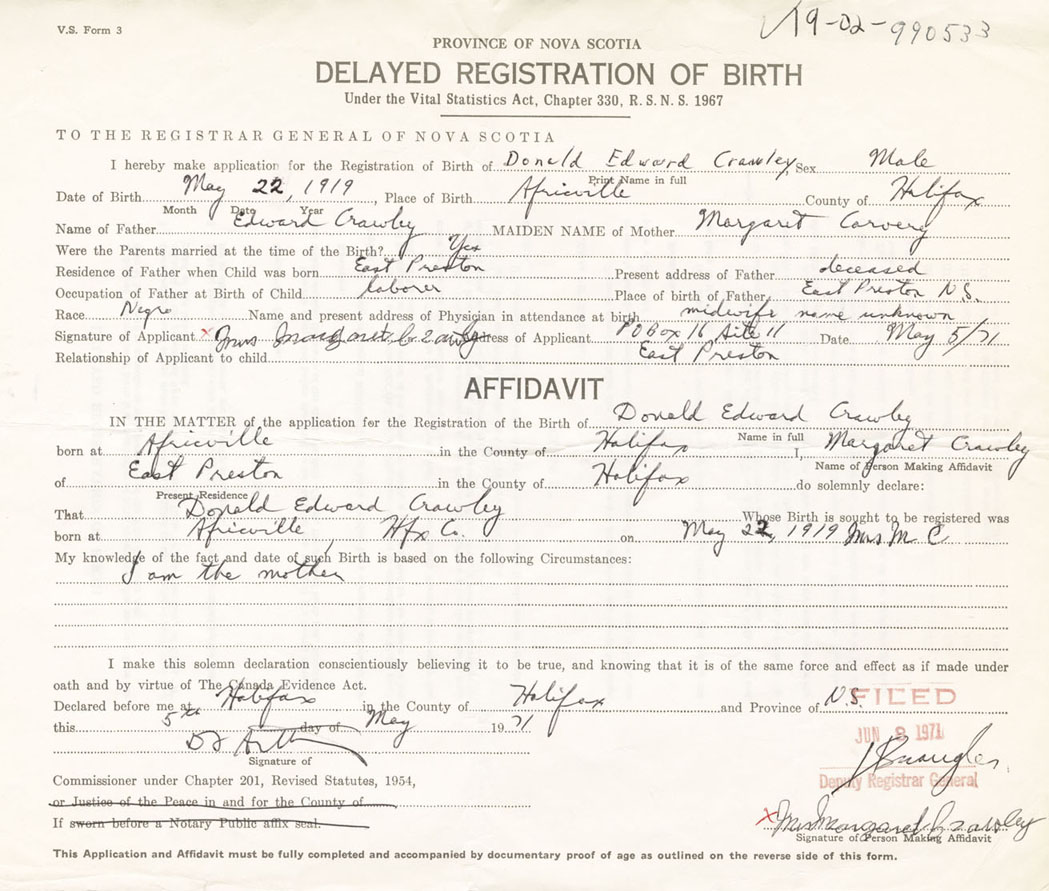 V.S. Form 3
19-02-990533
PROVINCE OF NOVA SCOTIA
DELAYED REGISTRATION OF BIRTH
Under the Vital Statistics Act, Chapter 330, R. S. N. S. 1967
TO THE REGISTRAR GENERAL OF NOVA SCOTIA
I hereby make application for the Registration of Birth of Donald Edward Crawley Sex Male
Print Name in full
Date of Birth May 22, 1919, Place of Birth Africville County of Halifax
Month Date Year
Name of Father Edward Crawley MAIDEN NAME of Mother Margaret Carvery
Were the Parents married at the time of the Birth? Yes
Residence of Father when Child was born East Preston Present address of Father deceased
Occupation of Father at Birth of Child laborer Place of birth of Father East Preston N.S.
Race Negro Name and present address of Physician in attendance at birth midwife name unknown
Signature of Applicant x Mrs Margaret Crawley Address of Applicant P O Box 16 Site 11 Date May 5/71
Relationship of Applicant to child East Preston
AFFIDAVIT
IN THE MATTER of the application for the Registration of the Birth of Donald Edward Crawley
Name in full
born at Africville in the County of Halifax I, Margaret Crawley
Name of Person Making Affidavit
of East Preston in the County of Halifax do solemnly declare:
Present Residence
That Donald Edward Crawley Whose Birth is sought to be registered was
born at Africville, Hfx Co. on May 22, 1919 Mrs M C
My knowledge of the fact and date of such Birth is based on the following Circumstances:
I am the mother
I make this solemn declaration conscientiously believing it to be true, and knowing that it is of the same force and effect as if made under
oath and by virtue of The Canada Evidence Act.
Declared before me at Halifax in the County of Halifax and Province of N.S.
FILED
this 5th day of May 1971
JUN 8 1971
Signature of
Deputy Registrar General
Commissioner under Chapter 201, Revised Statutes, 1954,
or Justice of the Peace in and for the County of
If sworn before a Notary Public affix seal.
x Mrs Margaret Crawley
Signature of Person Making Affidavit
This Application and Affidavit must be fully completed and accompanied by documentary proof of age as outlined on the reverse side of this form.